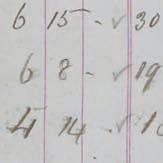 6 15 - ✓ 30
6 8 - ✓ 19
4 14 - ✓